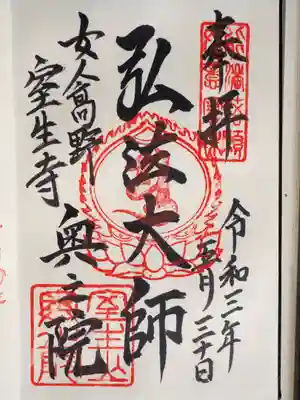 奉拝
令和三年
五月三十日
弘法大師
奥之院
女人高野
室生寺